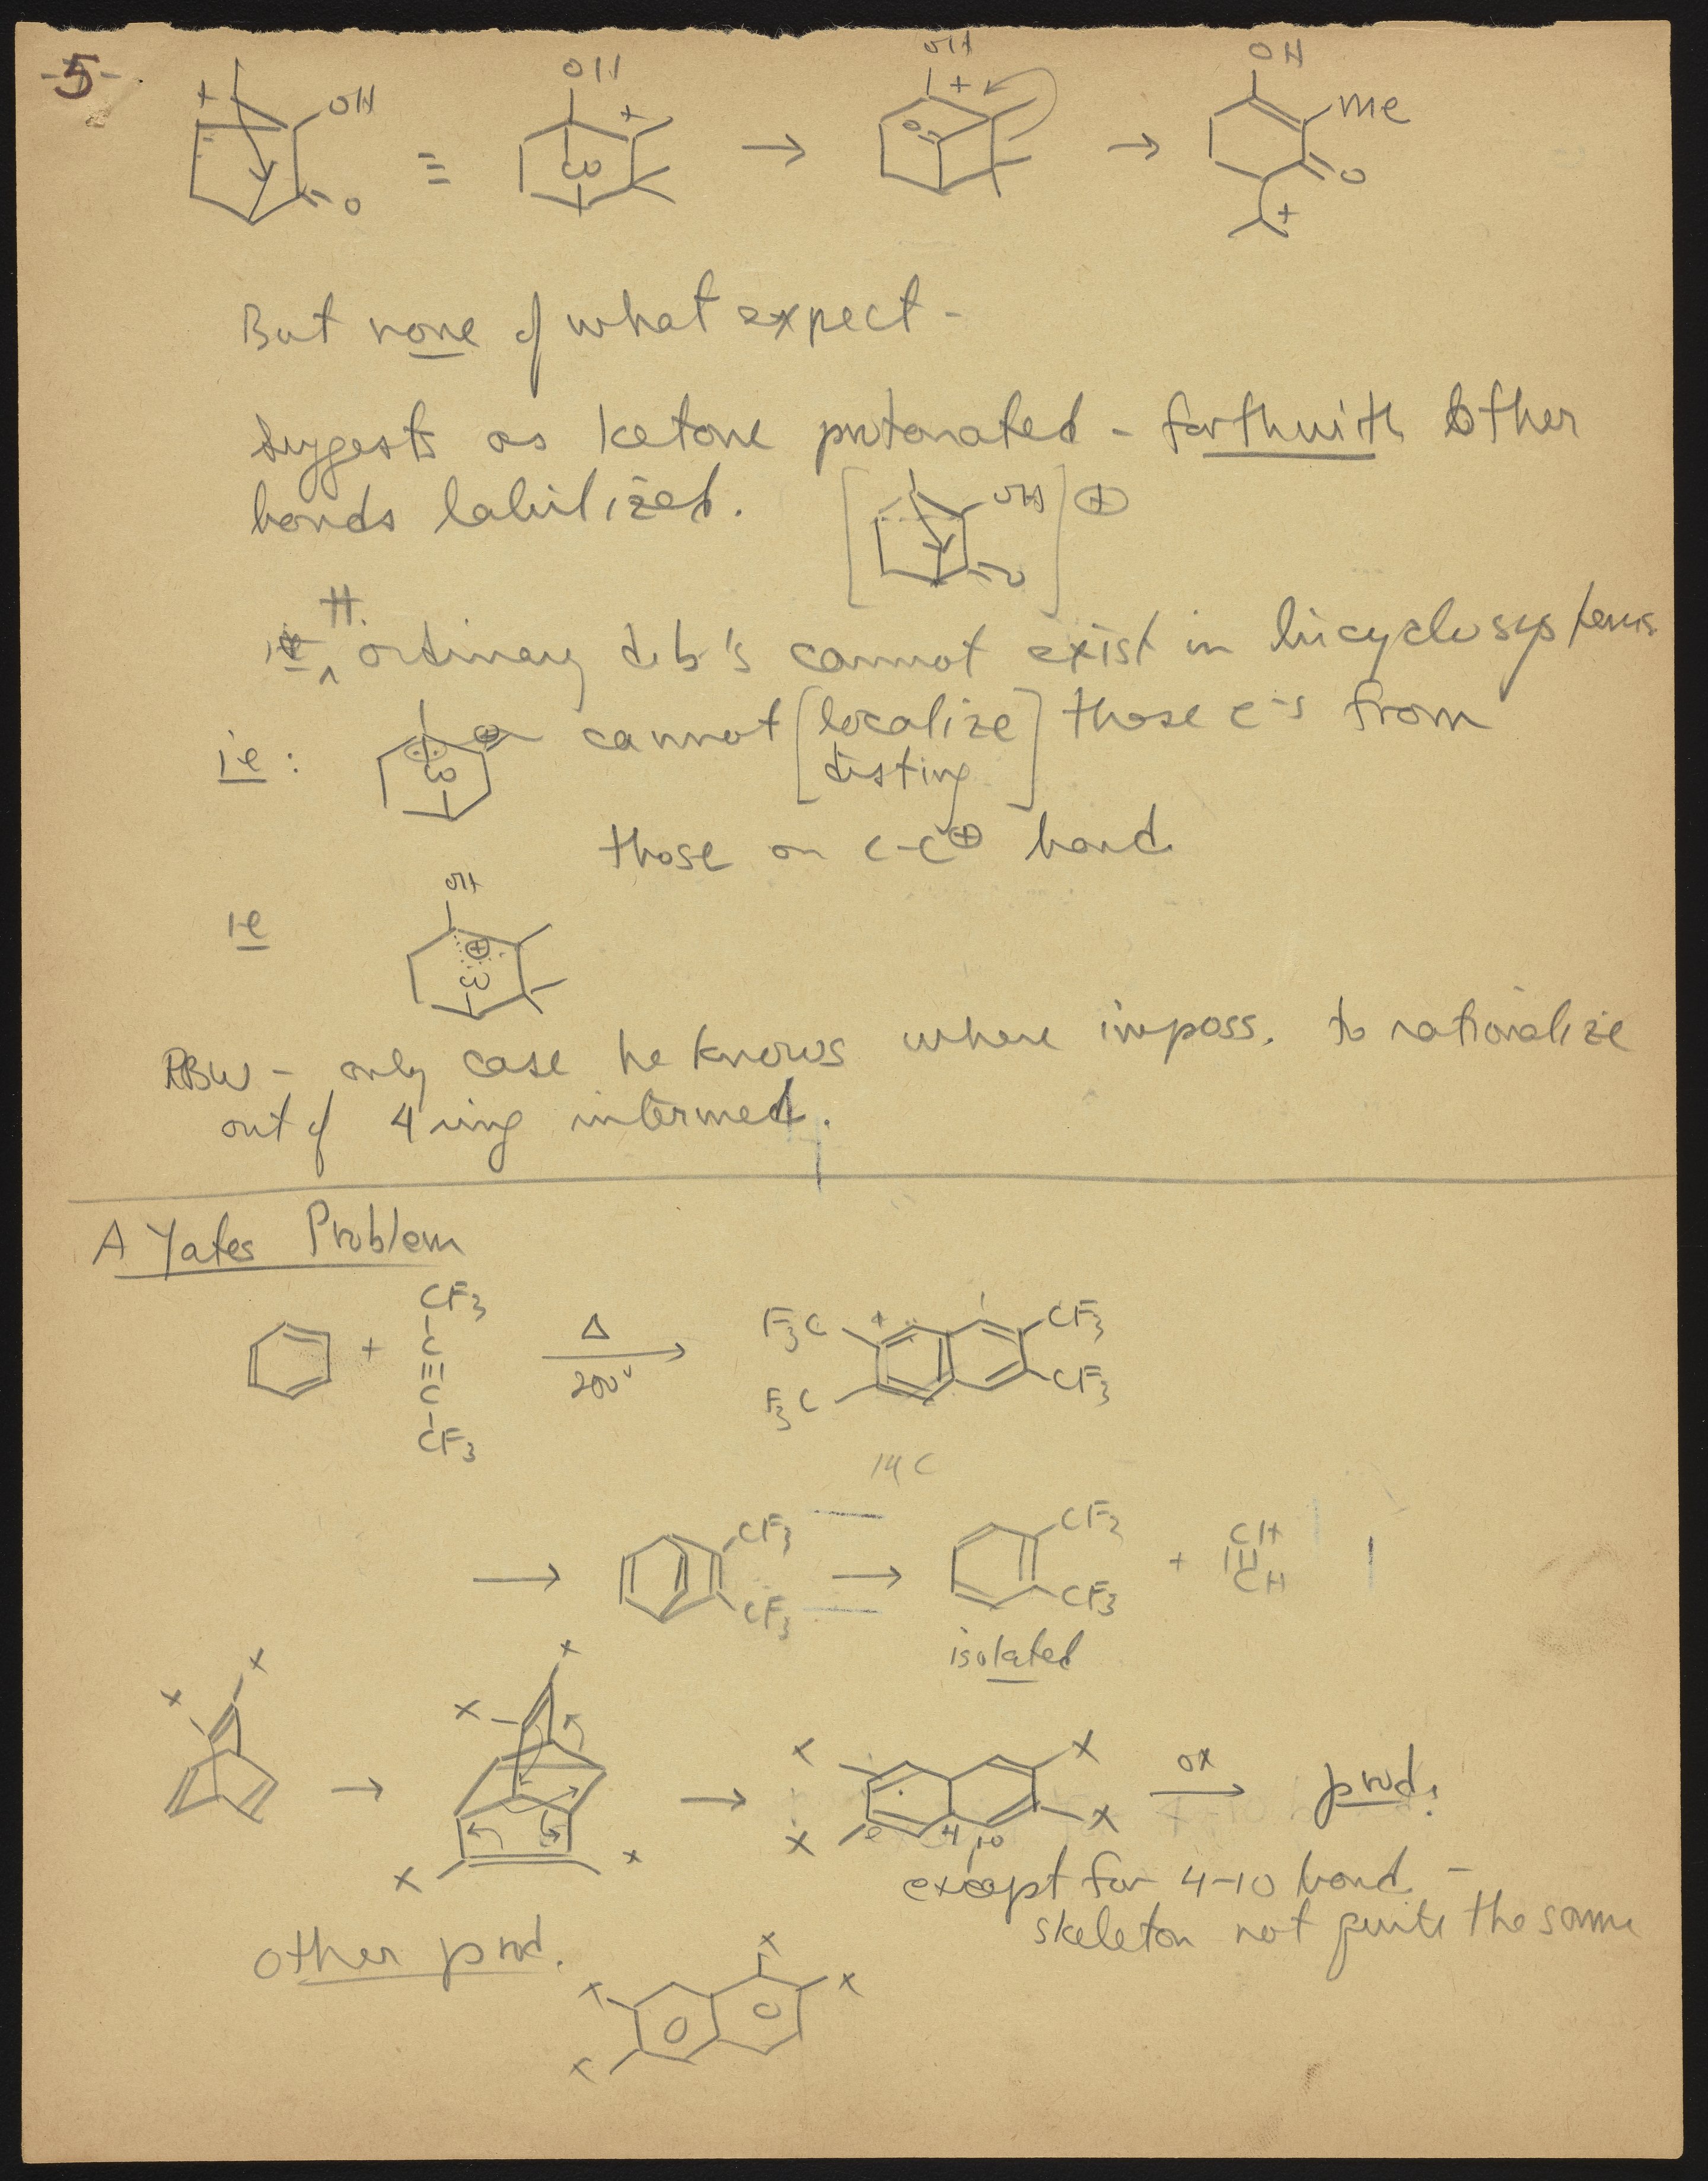 -5-
+ OH O ≡ OH + CO → OH + O → OH Me O +
But none of what expect -
suggests as ketone protonated - forthwith other
bonds labilized. [ OH O ] ⊕
H
ordinary d.b's cannot exist in bicyclo systems
ie: ⊕ CO cannot [localize] those e-s from
disting
those on C-C⊕ bond
OH
ie ⊕ CO
RBW - only case he knows where imposs. to rationalize
out of 4 ring intermed.
A Yates Problem
+ CF3 - C ≡ C - CF3 Δ 200° → F3C F3C CF3 CF3
14 C
→ CF3 CF3 → CF3 CF3 + CH ||| CH
isolated
X X → X X X X → X X X X ox → prod.
4 10
except for 4-10 bond -
skeleton not quite the same
other prod.
X X X X